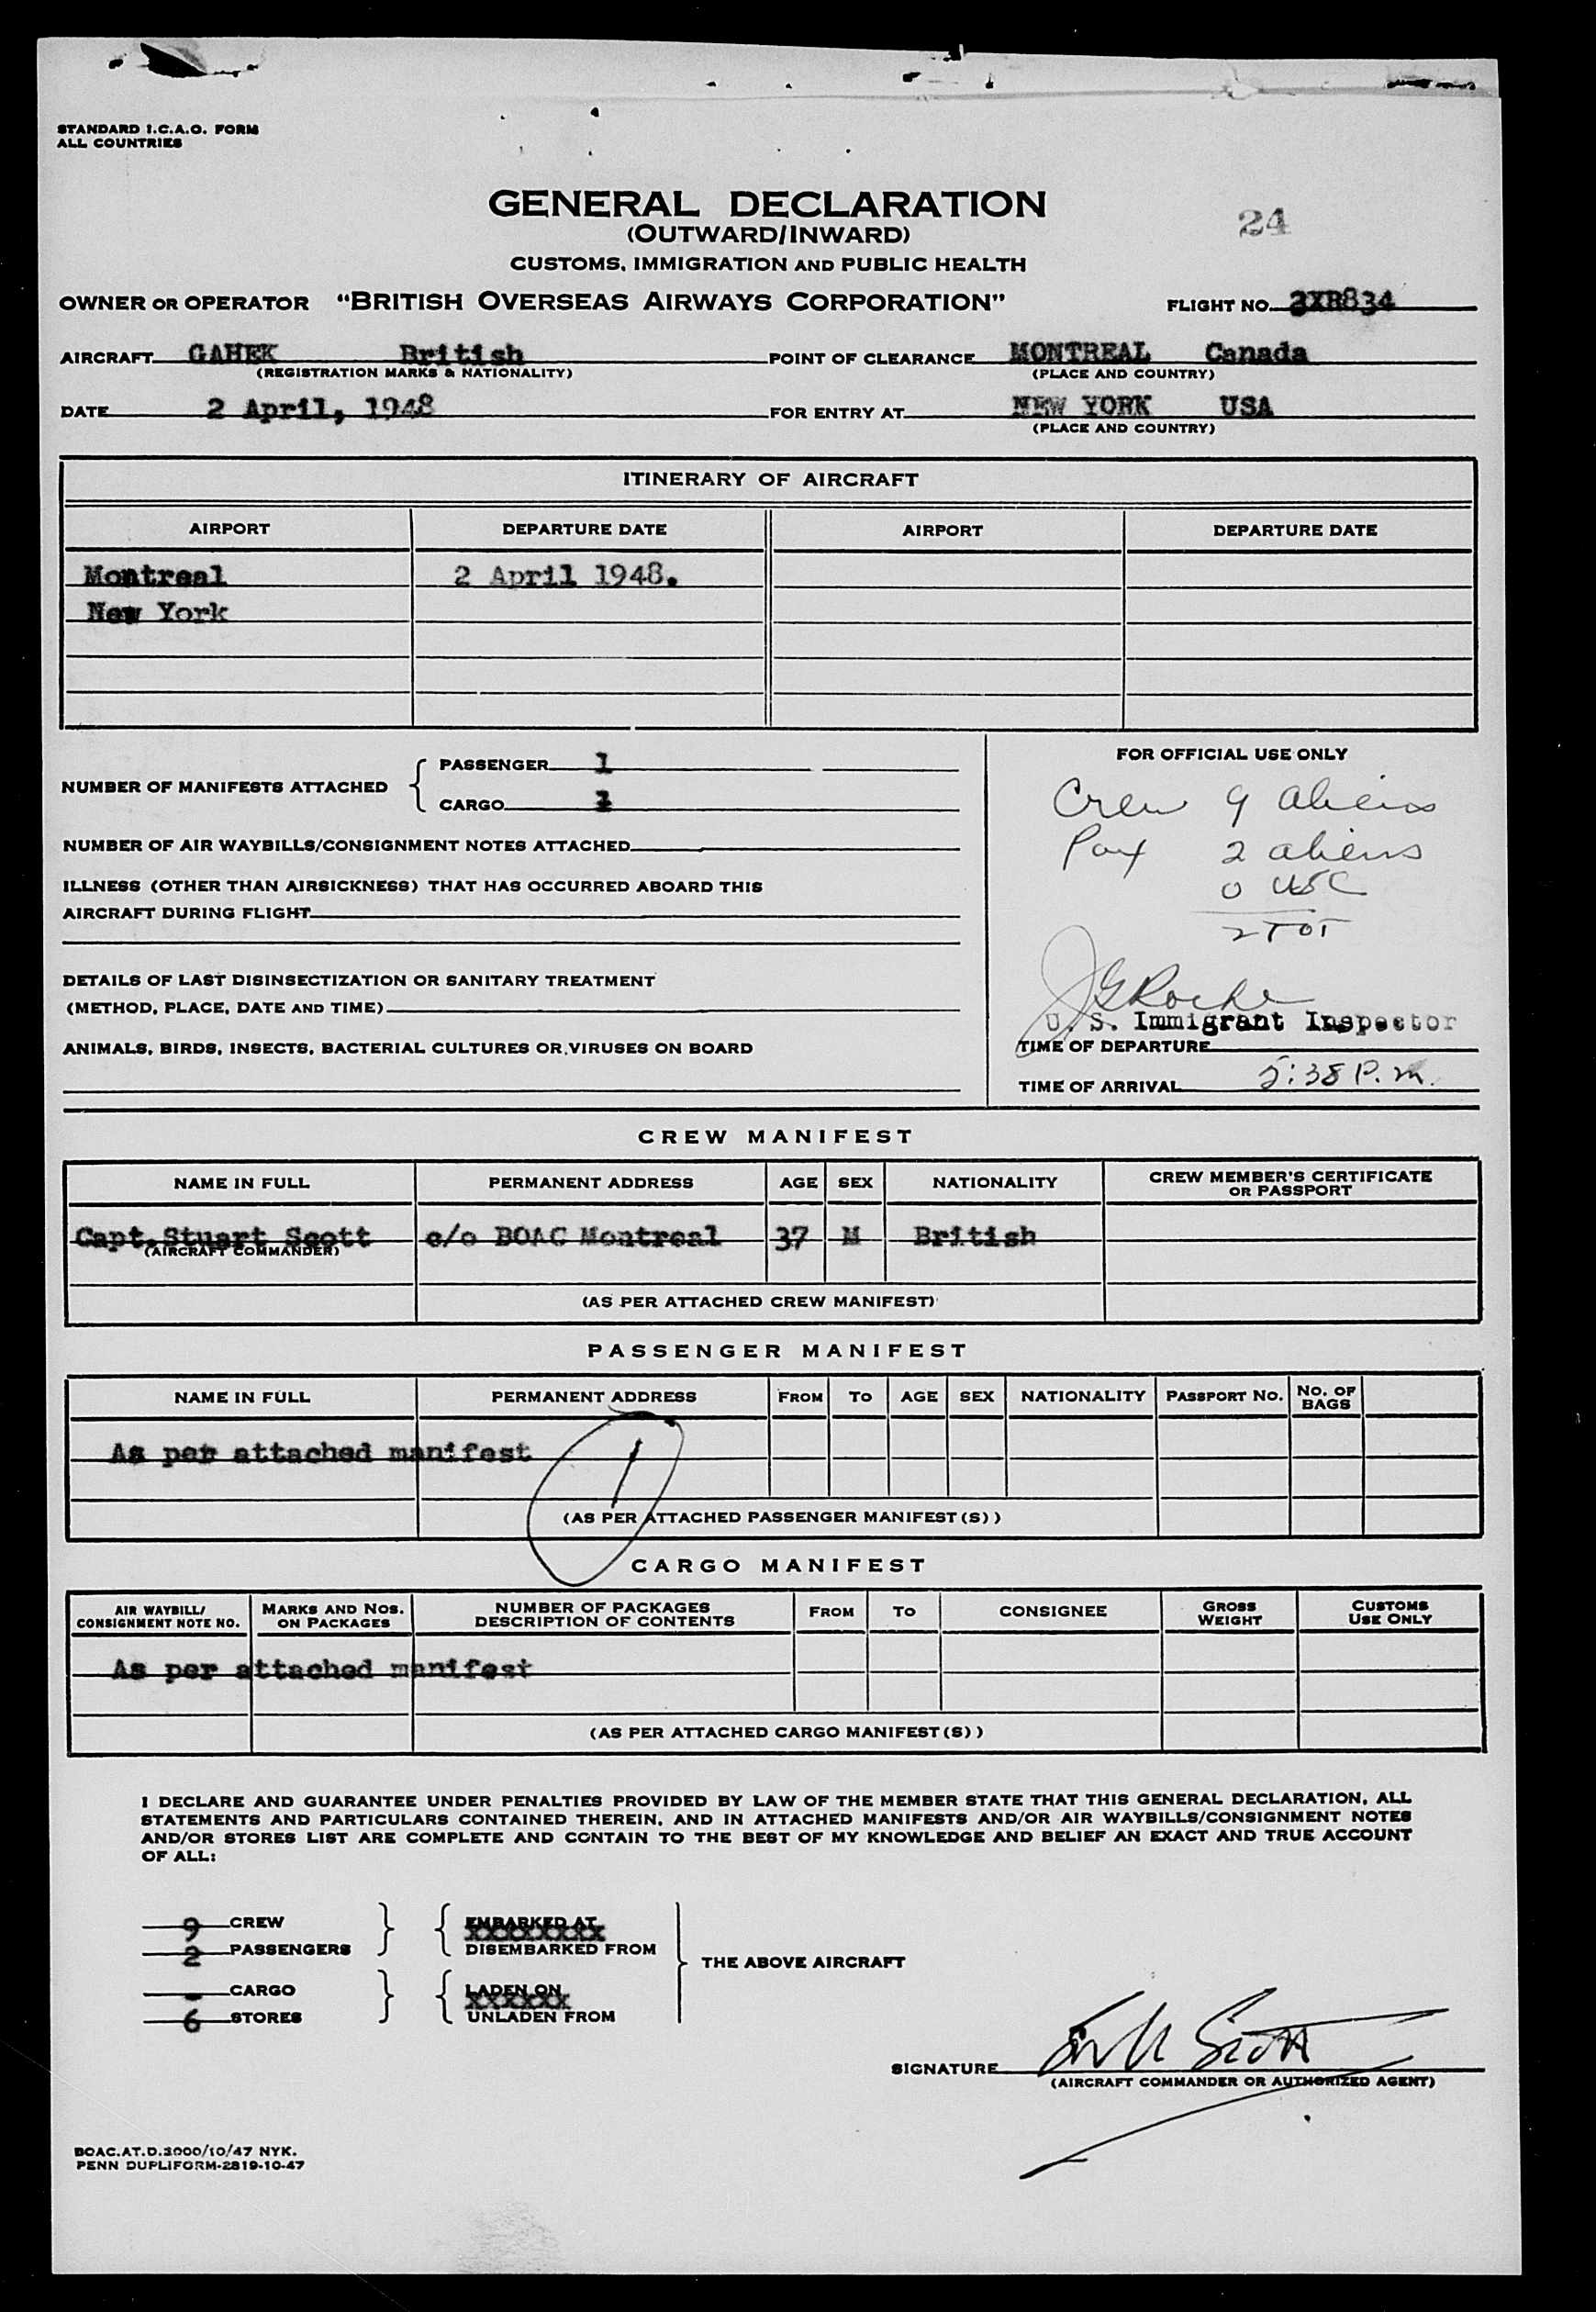 STANDARD I.C.A.O. FORM
ALL COUNTRIES
GENERAL DECLARATION
(OUTWARD/INWARD)
24
CUSTOMS, IMMIGRATION AND PUBLIC HEALTH
OWNER OR OPERATOR "BRITISH OVERSEAS AIRWAYS CORPORATION" FLIGHT NO. 2XR834
AIRCRAFT GAHEK British POINT OF CLEARANCE MONTREAL Canada
(REGISTRATION MARKS & NATIONALITY) (PLACE AND COUNTRY)
DATE 2 April, 1948 FOR ENTRY AT NEW YORK USA
(PLACE AND COUNTRY)
ITINERARY OF AIRCRAFT
AIRPORT DEPARTURE DATE AIRPORT DEPARTURE DATE
Montreal 2 April 1948.
New York
NUMBER OF MANIFESTS ATTACHED
PASSENGER 1
CARGO
NUMBER OF AIR WAYBILLS/CONSIGNMENT NOTES ATTACHED
ILLNESS (OTHER THAN AIRSICKNESS) THAT HAS OCCURRED ABOARD THIS
AIRCRAFT DURING FLIGHT
DETAILS OF LAST DISINSECTIZATION OR SANITARY TREATMENT
(METHOD, PLACE, DATE AND TIME)
ANIMALS, BIRDS, INSECTS, BACTERIAL CULTURES OR VIRUSES ON BOARD
FOR OFFICIAL USE ONLY
Crew 9 aliens
Pax 2 aliens
0 USC
2 TOT
J G Roche
U. S. Immigrant Inspector
TIME OF DEPARTURE
TIME OF ARRIVAL 5:38 P.M.
CREW MANIFEST
NAME IN FULL PERMANENT ADDRESS AGE SEX NATIONALITY CREW MEMBER'S CERTIFICATE
OR PASSPORT
Capt. Stuart Scott c/o BOAC Montreal 37 M British
(AIRCRAFT COMMANDER)
(AS PER ATTACHED CREW MANIFEST)
PASSENGER MANIFEST
NAME IN FULL PERMANENT ADDRESS FROM TO AGE SEX NATIONALITY PASSPORT NO. NO. OF
BAGS
As per attached manifest
1
(AS PER ATTACHED PASSENGER MANIFEST(S))
CARGO MANIFEST
AIR WAYBILL/ MARKS AND NOS. NUMBER OF PACKAGES FROM TO CONSIGNEE GROSS CUSTOMS
CONSIGNMENT NOTE NO. ON PACKAGES DESCRIPTION OF CONTENTS WEIGHT USE ONLY
As per attached manifest
(AS PER ATTACHED CARGO MANIFEST(S))
I DECLARE AND GUARANTEE UNDER PENALTIES PROVIDED BY LAW OF THE MEMBER STATE THAT THIS GENERAL DECLARATION, ALL
STATEMENTS AND PARTICULARS CONTAINED THEREIN, AND IN ATTACHED MANIFESTS AND/OR AIR WAYBILLS/CONSIGNMENT NOTES
AND/OR STORES LIST ARE COMPLETE AND CONTAIN TO THE BEST OF MY KNOWLEDGE AND BELIEF AN EXACT AND TRUE ACCOUNT
OF ALL:
9 CREW EMBARKED AT
2 PASSENGERS DISEMBARKED FROM
THE ABOVE AIRCRAFT
- CARGO LADEN ON
6 STORES UNLADEN FROM
SIGNATURE Scott
(AIRCRAFT COMMANDER OR AUTHORIZED AGENT)
BOAC.AT.D.3000/10/47 NYK.
PENN DUPLIFORM-2819-10-47